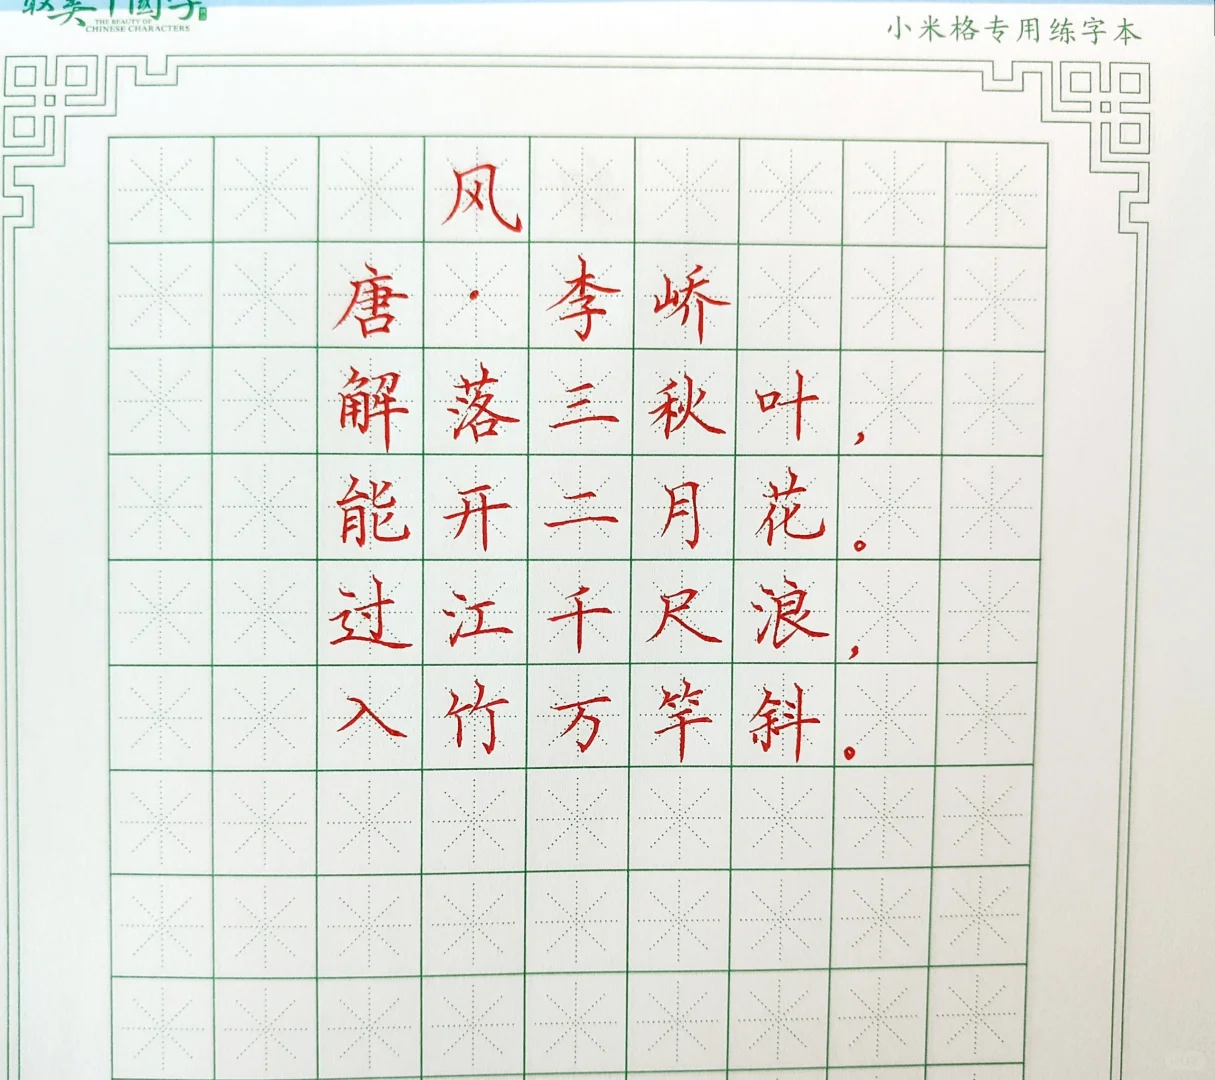 最美中国字
THE BEAUTY OF
CHINESE CHARACTERS
小米格专用练字本
风
唐·李峤
解落三秋叶，
能开二月花。
过江千尺浪，
入竹万竿斜。